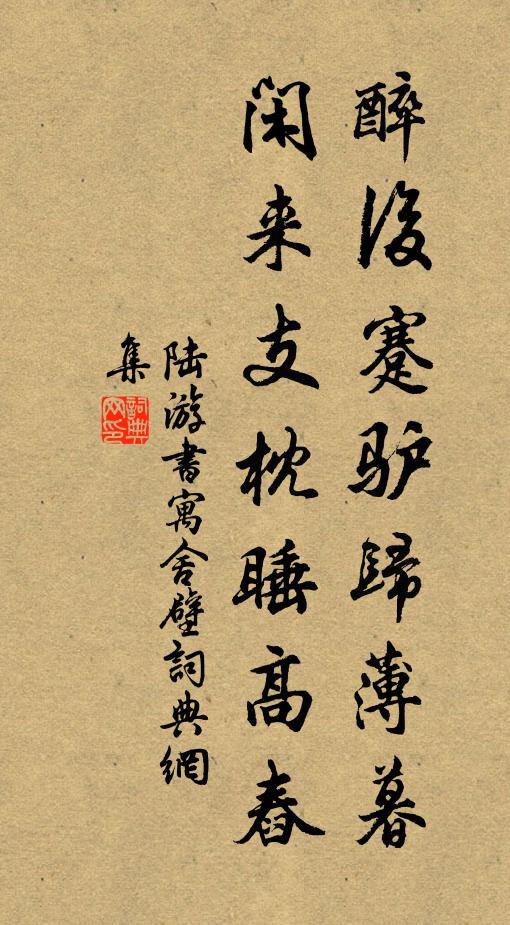 醉後蹇驴歸薄暮
闲来支枕睡高舂
陆游書寓舍壁詞典網
集
詞典
网印